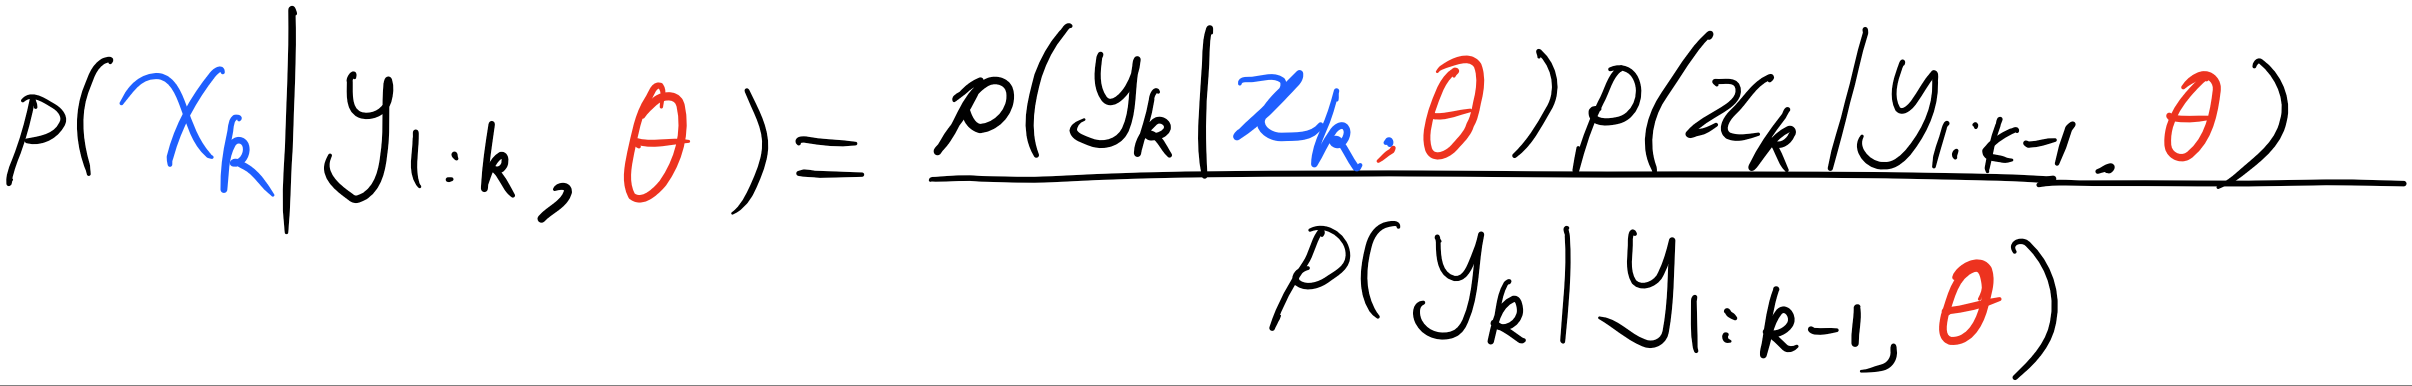 p(x_k | y_{1:k}, θ) = \frac{p(y_k | x_k, θ) p(x_k | y_{1:k-1}, θ)}{p(y_k | y_{1:k-1}, θ)}